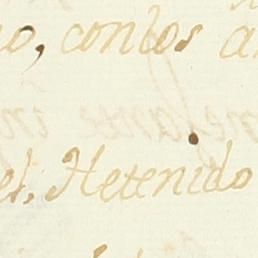 o, con los a
el, Hetenido